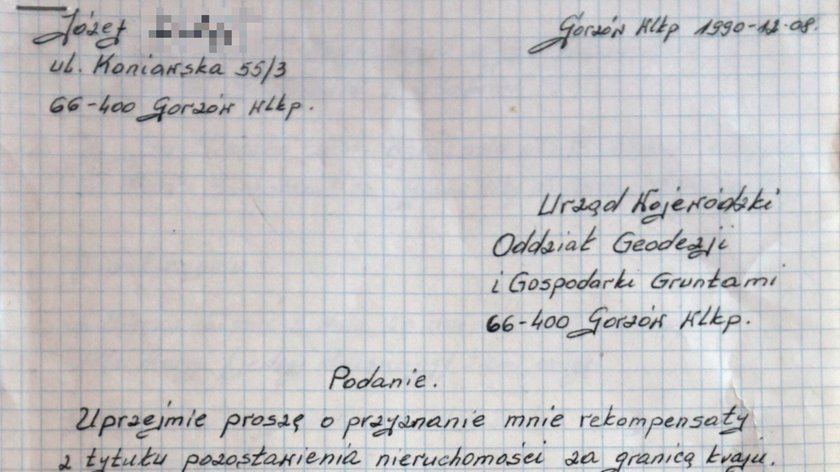 Józef
Gorzów Wlkp 1990-12-08.
ul. Koniawska 55/3
66-400 Gorzów Wlkp.
Urząd Wojewódzki
Oddział Geodezji
i Gospodarki Gruntami
66-400 Gorzów Wlkp.
Podanie.
Uprzejmie proszę o przyznanie mnie rekompensaty
z tytułu pozostawienia nieruchomości za granicą kraju.